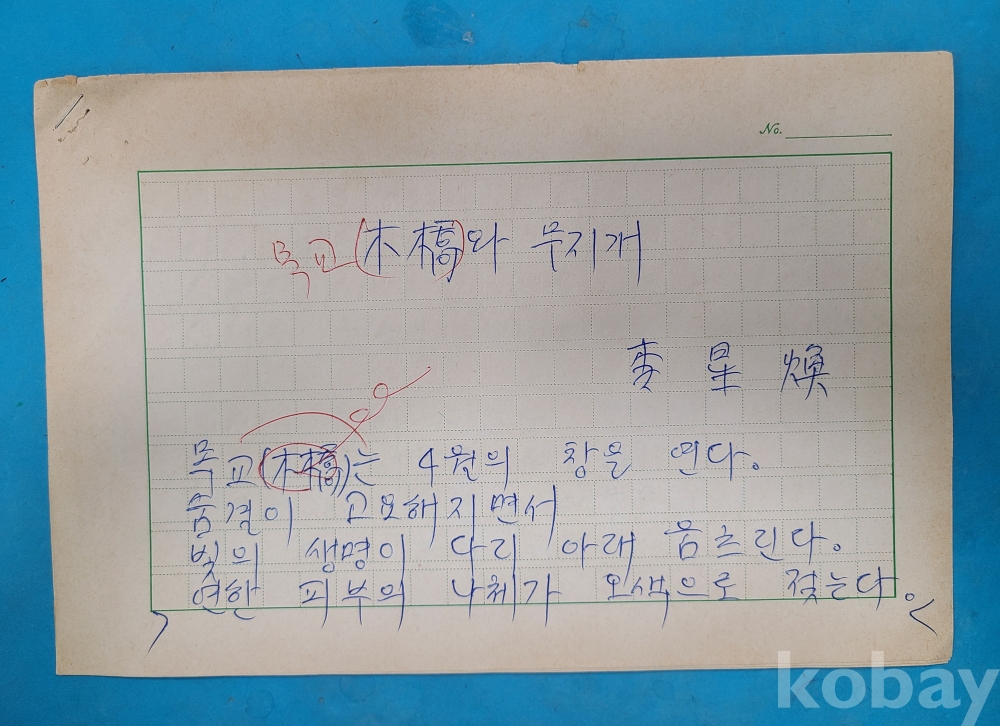 No.
목교(木橋)와 무지개
星 煥
목교(木橋)는 4월의 창을 연다.
숨결이 고요해지면서
빛의 생명이 다리 아래 움츠린다.
연한 피부의 나체가 오색으로 젖는다.
kobay